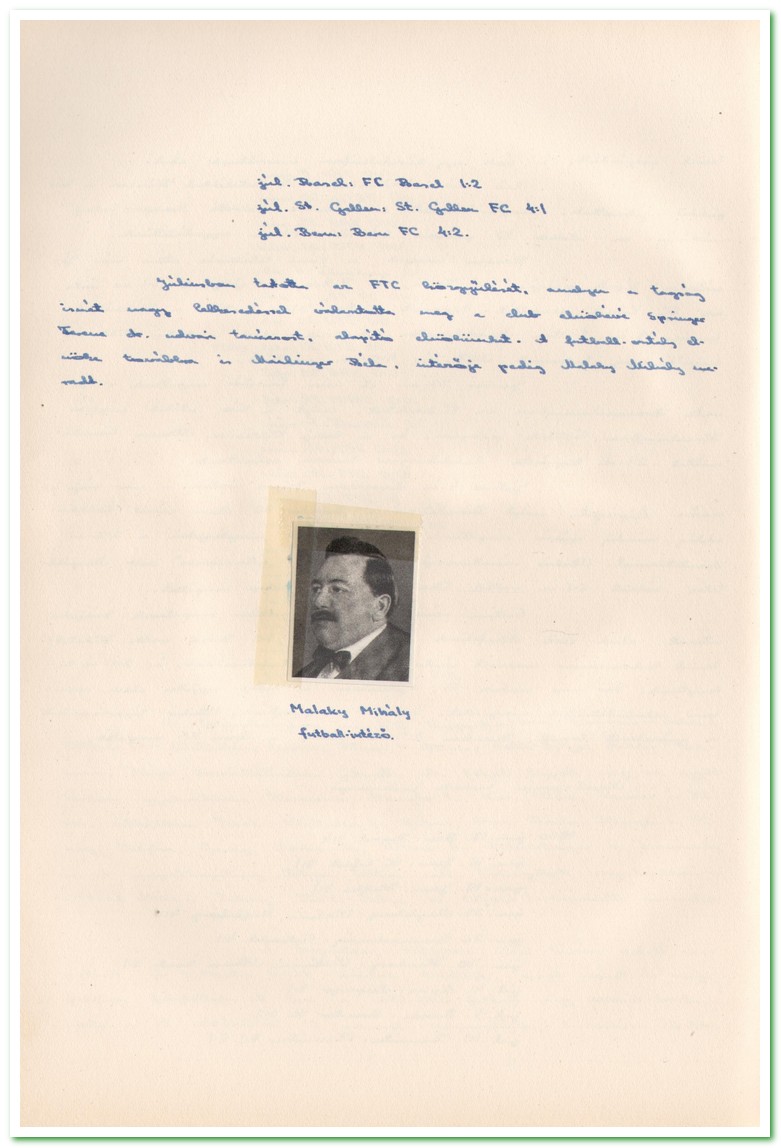 júl. Basel: FC Basel 1:2
júl. St. Gallen: St. Gallen FC 4:1
júl. Bern: Bern FC 4:2.
Júliusban tartotta az FTC közgyűlését, amelyen a tagság
ismét nagy lelkesedéssel választotta meg a club elnökévé Springer
Ferenc dr. udvari tanácsost, alapító elnökünket. A futball-osztály el-
nöke továbbra is Mailinger Béla, intézője pedig Malaky Mihály ma-
radt.
Malaky Mihály
futball-intéző.